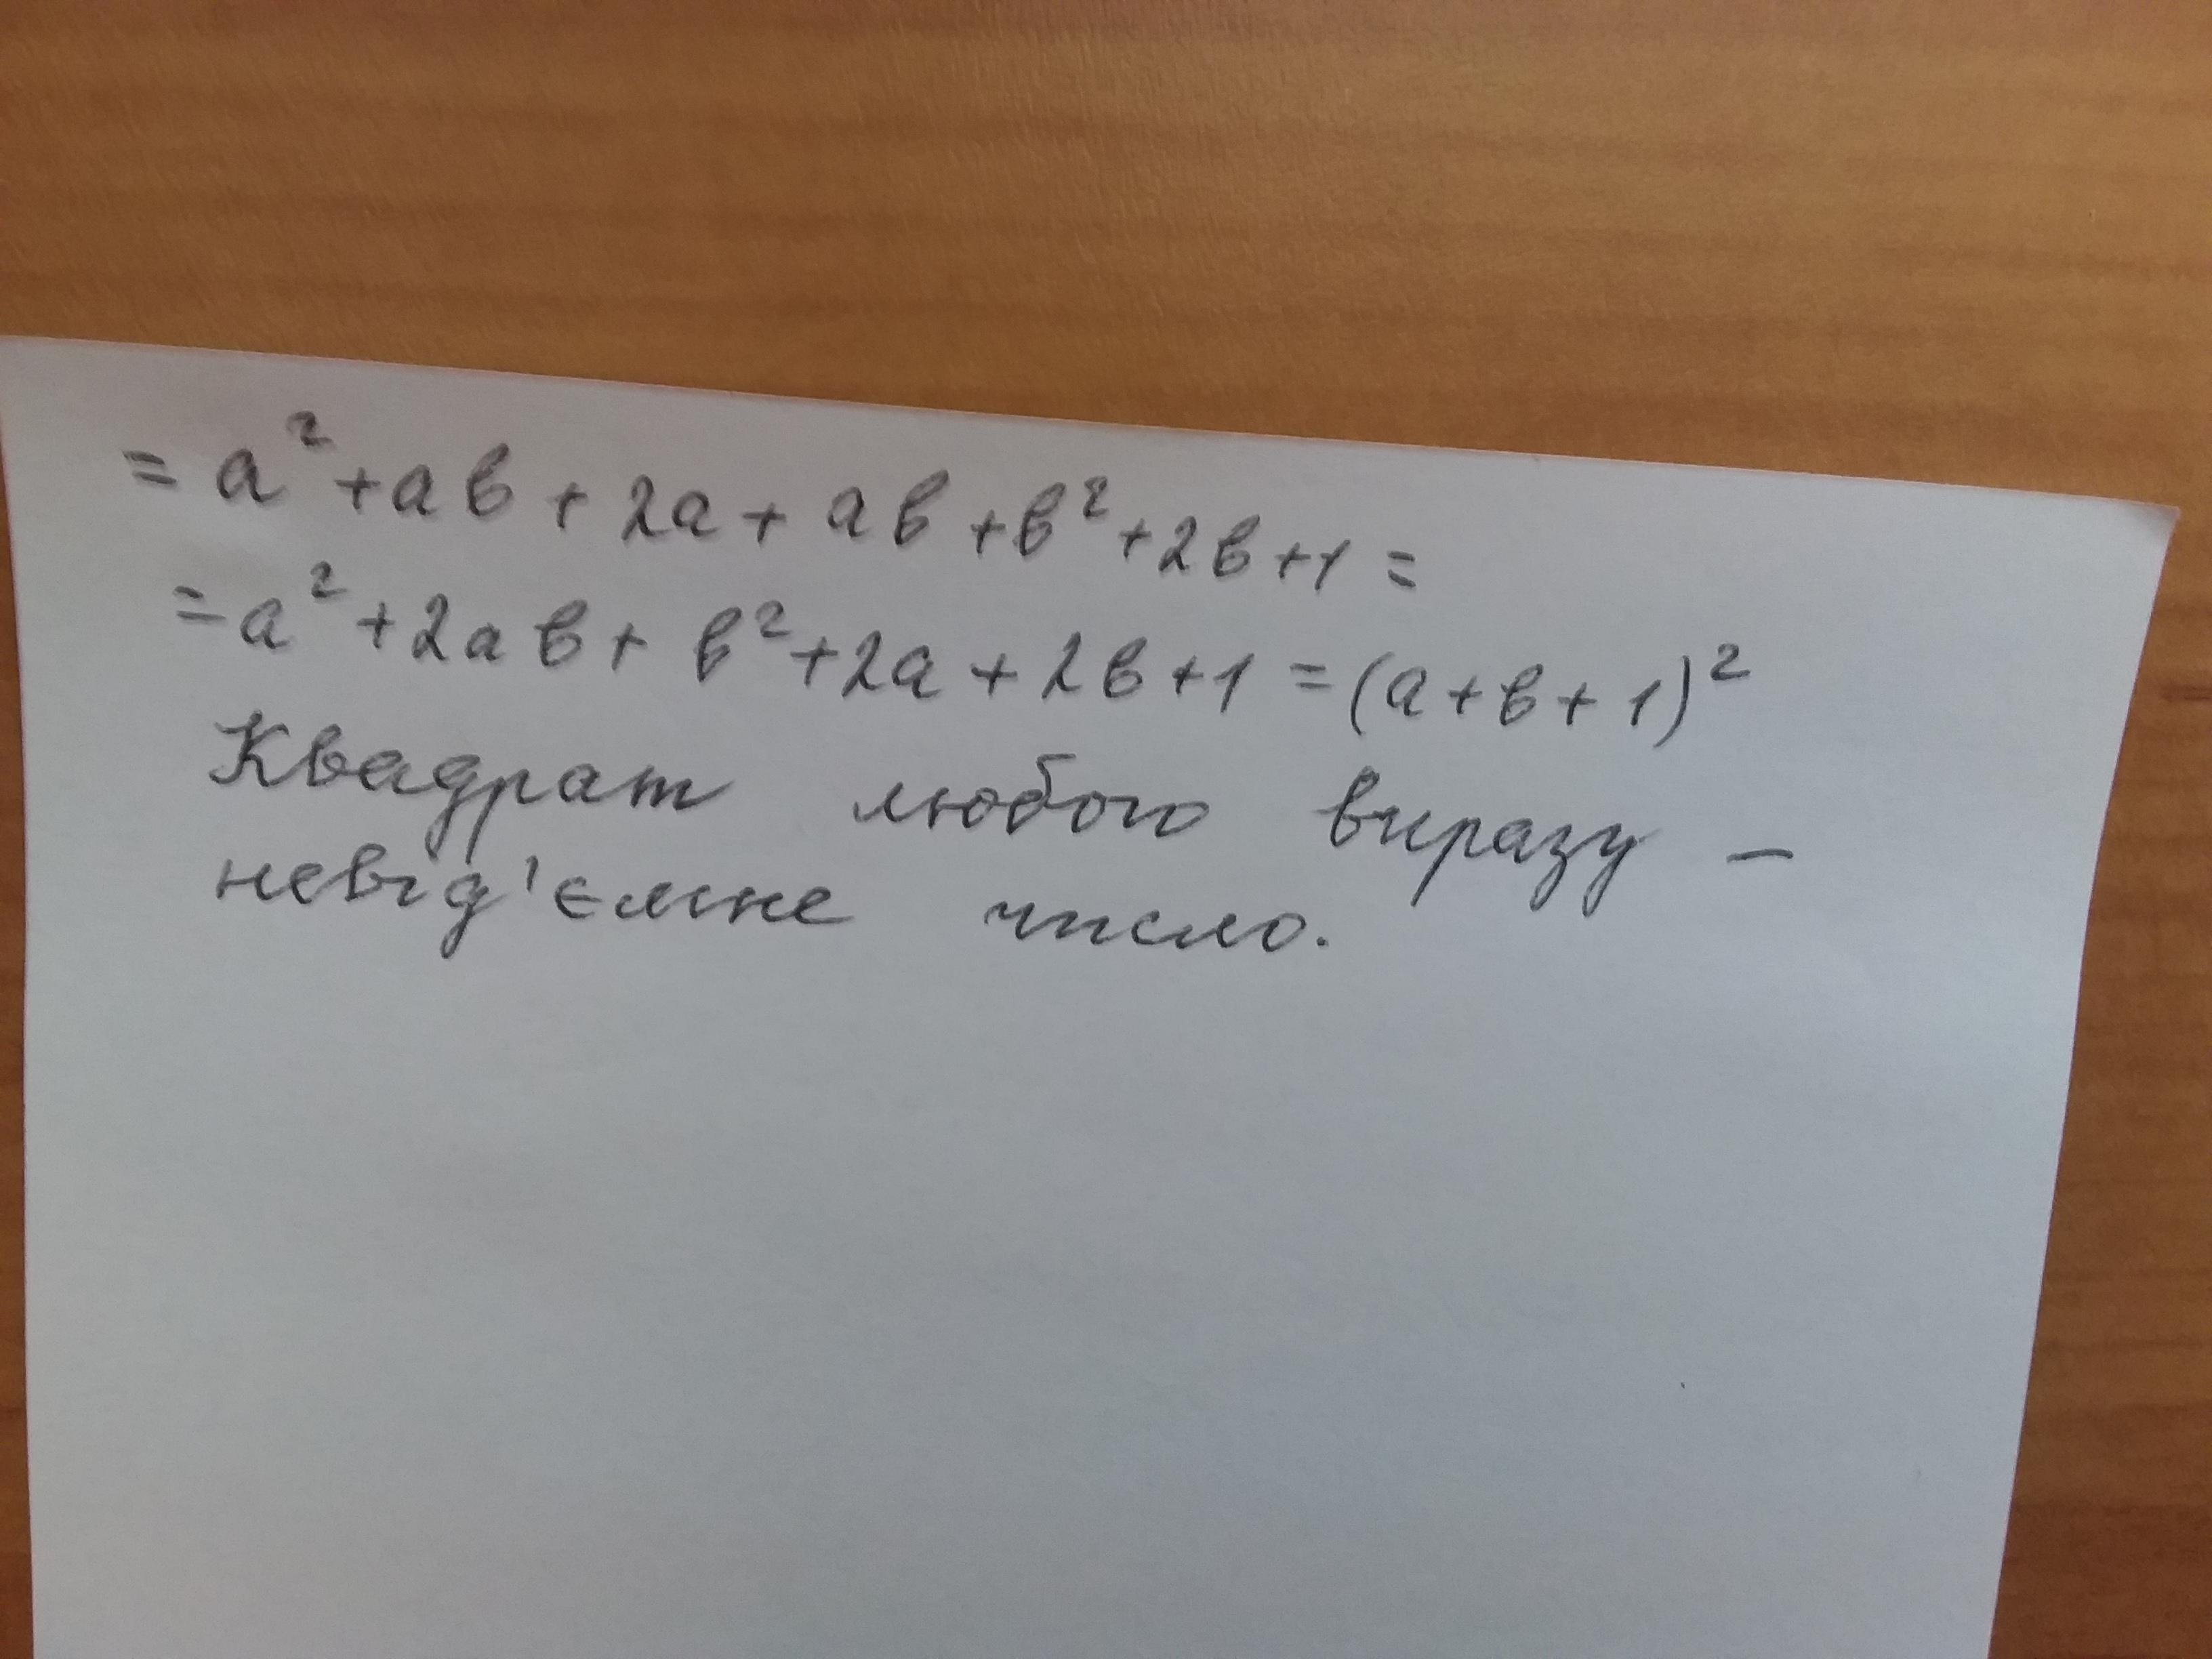 = a² + aв + 2a + aв + в² + 2в + 1 =
= a² + 2aв + в² + 2a + 2в + 1 = (a + в + 1)²
Квадрат любого виразу –
невід'ємне число.